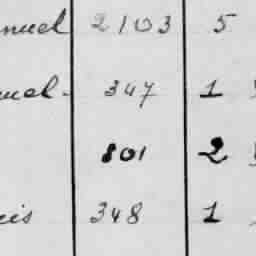 nuel 2103 5
uel. 347 1
801 2
cis 348 1